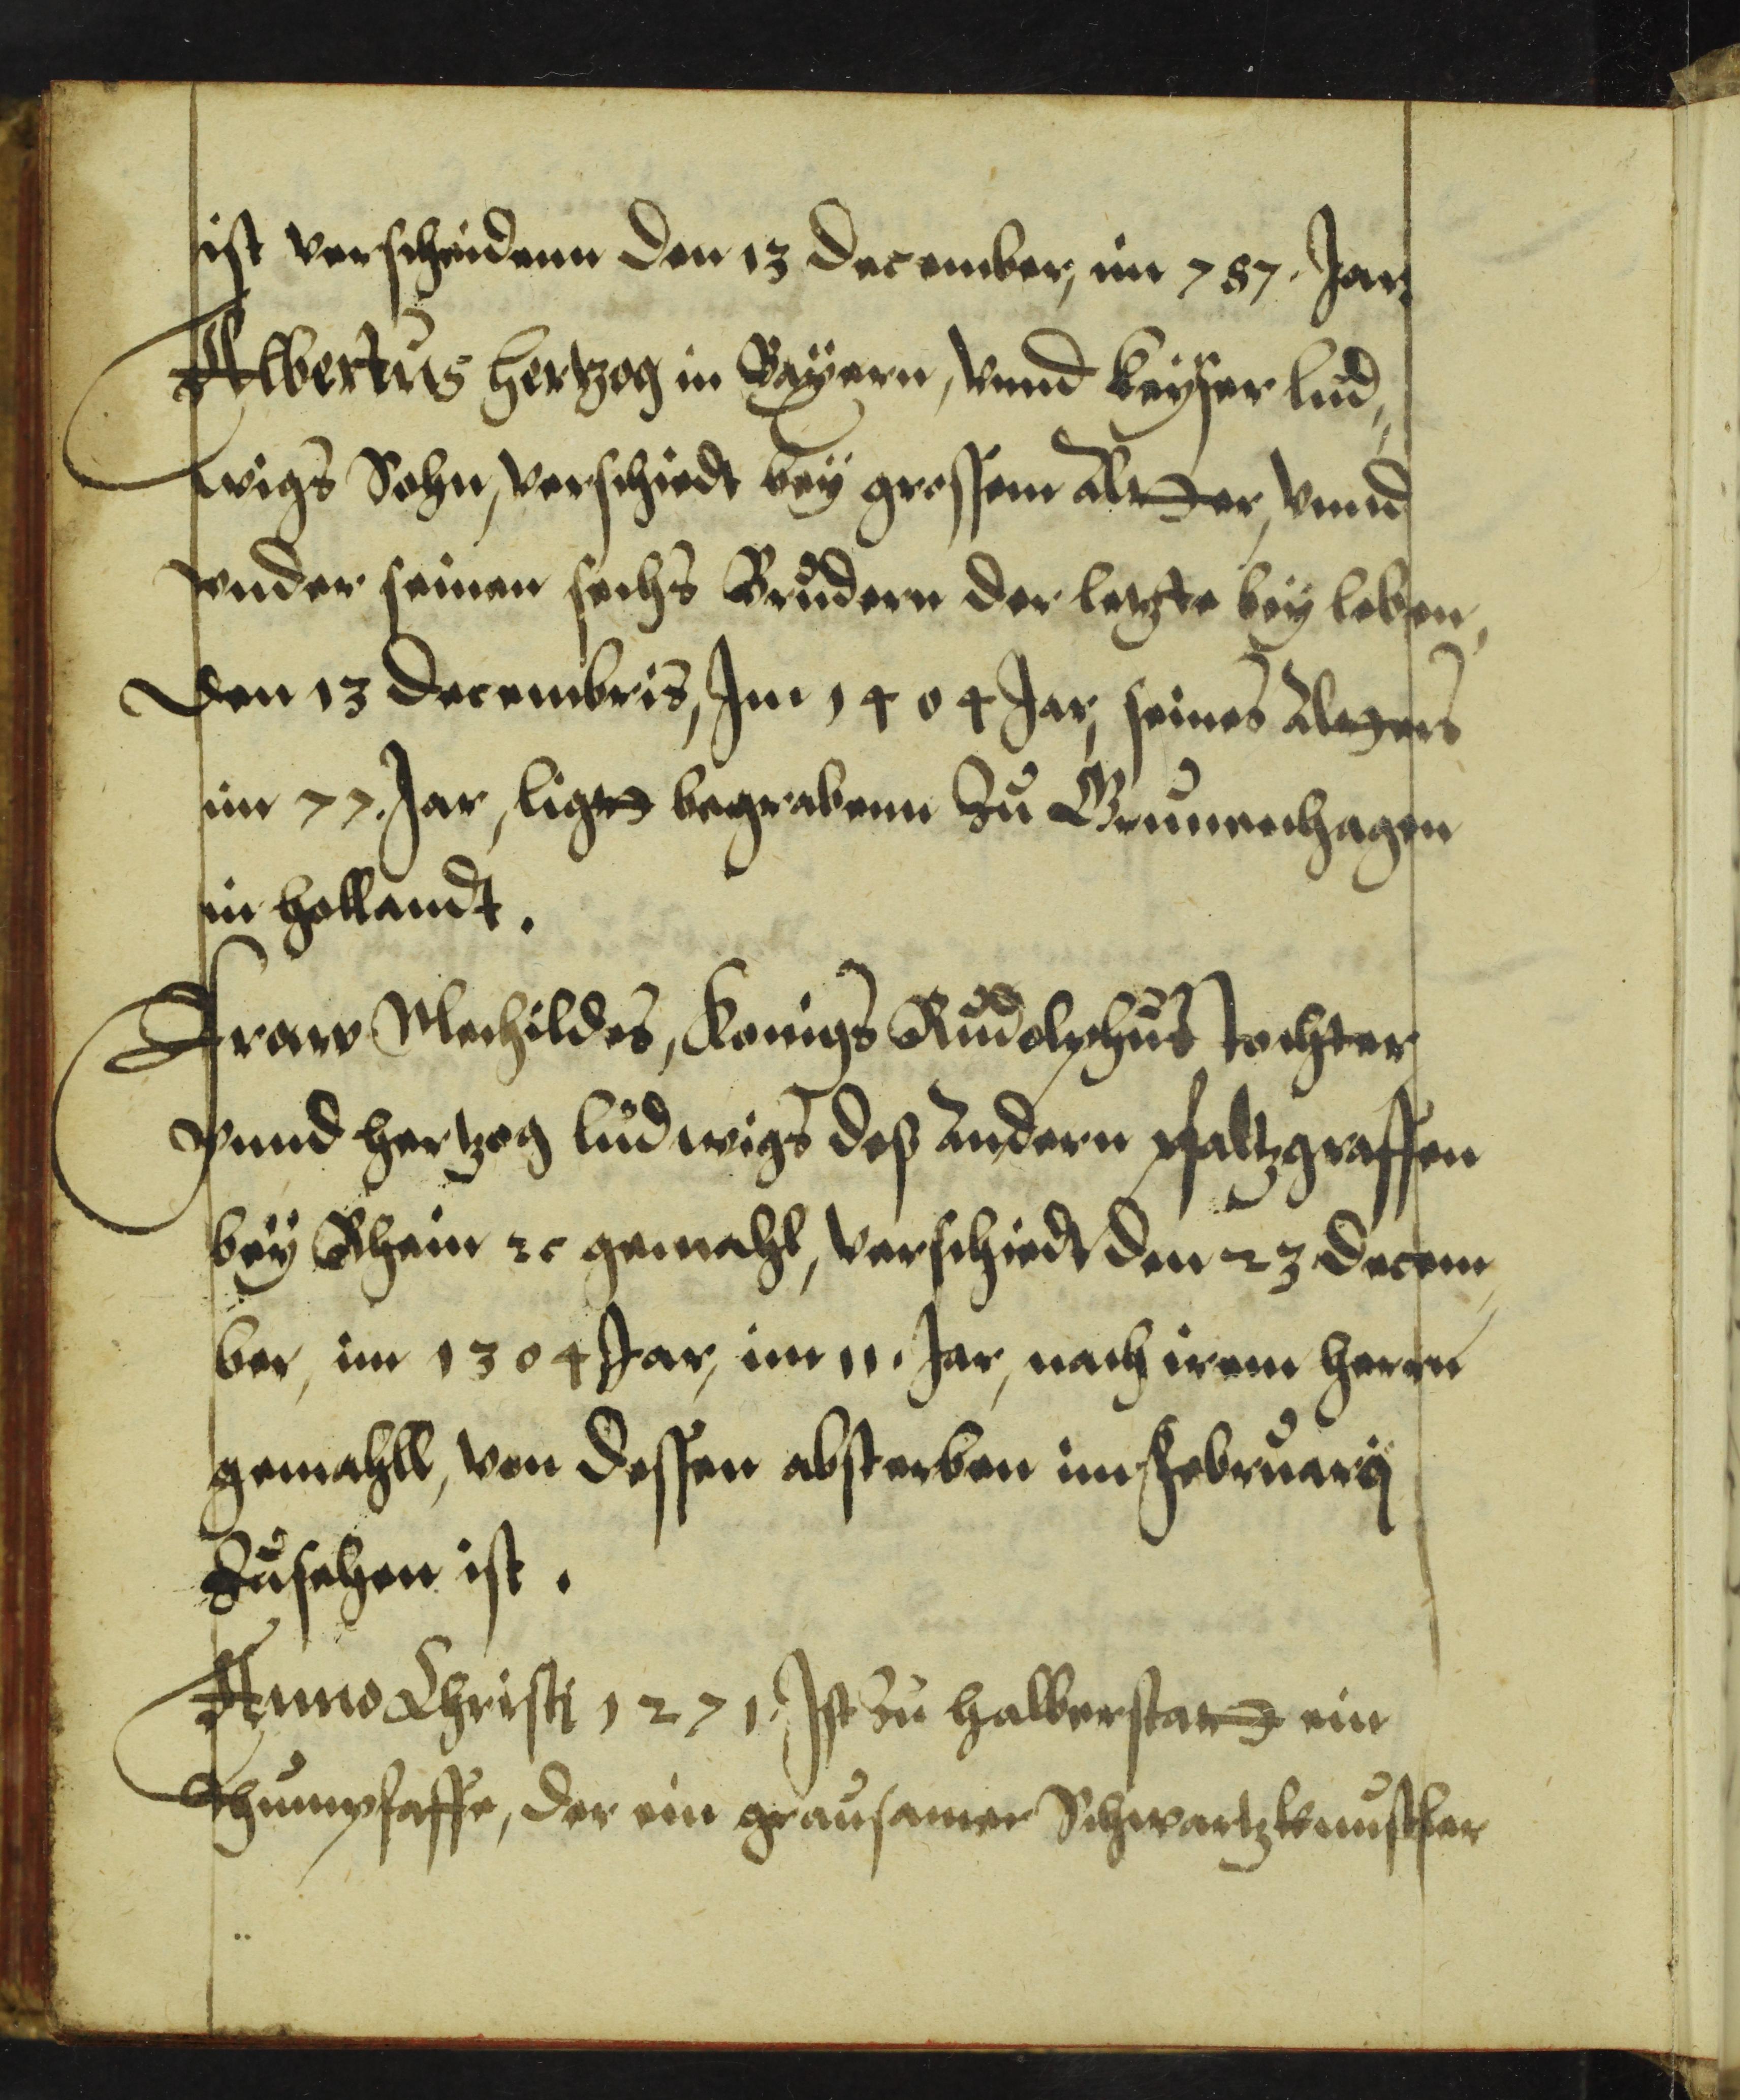 ist verscheidenn den 13 December, im 787. Jar.
Albertus Hertzog in Bayern, vnnd Keyser Lud„
wigs Sohn, verschiedt bey grossem Altter, vnnd
vnder seinen sechs Brudern der letzte bey leben,
den 13 Decembris, Im 1404 Jar, seines Alters
im 77. Jar, ligtt begrabenn zu Grauenhagen
in Hollandt.
Fraw Mechildes, Konigs Rudolphus Tochter
vnnd Hertzog Ludwigs deß Andern Pfaltzgraffen
bey Rhein ꝛc gemahl, verschiedt den 23 Decem„
ber, im 1304 Jar, im 11. Jar, nach irem herrn
gemahll, von dessen absterben im Februarij
zusehen ist.
Anno Christi 1271. Ist zu Halberstatt ein
Thumpfaffe, der ein grausamer Schwartzkunstler